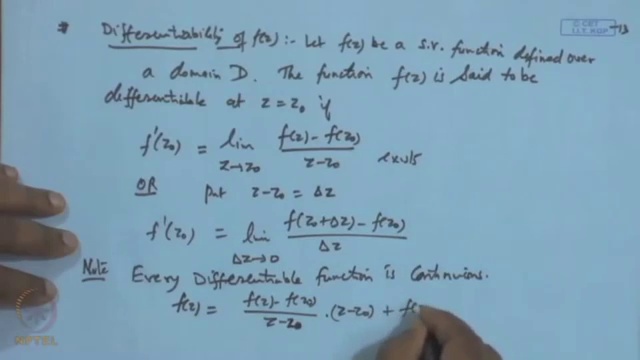 * Differentiability of f(z) :- Let f(z) be a s.v. function defined over
a domain D. The function f(z) is said to be
differentiable at z = z₀ if
f'(z₀) = lim_{z→z₀} (f(z) - f(z₀))/(z - z₀) exists
OR put z - z₀ = Δz
f'(z₀) = lim_{Δz→0} (f(z₀+Δz) - f(z₀))/Δz
Note Every Differentiable function is Continuous.
f(z) = (f(z) - f(z₀))/(z - z₀) . (z - z₀) + f(
© CET
I.I.T. KGP
13
NPTEL